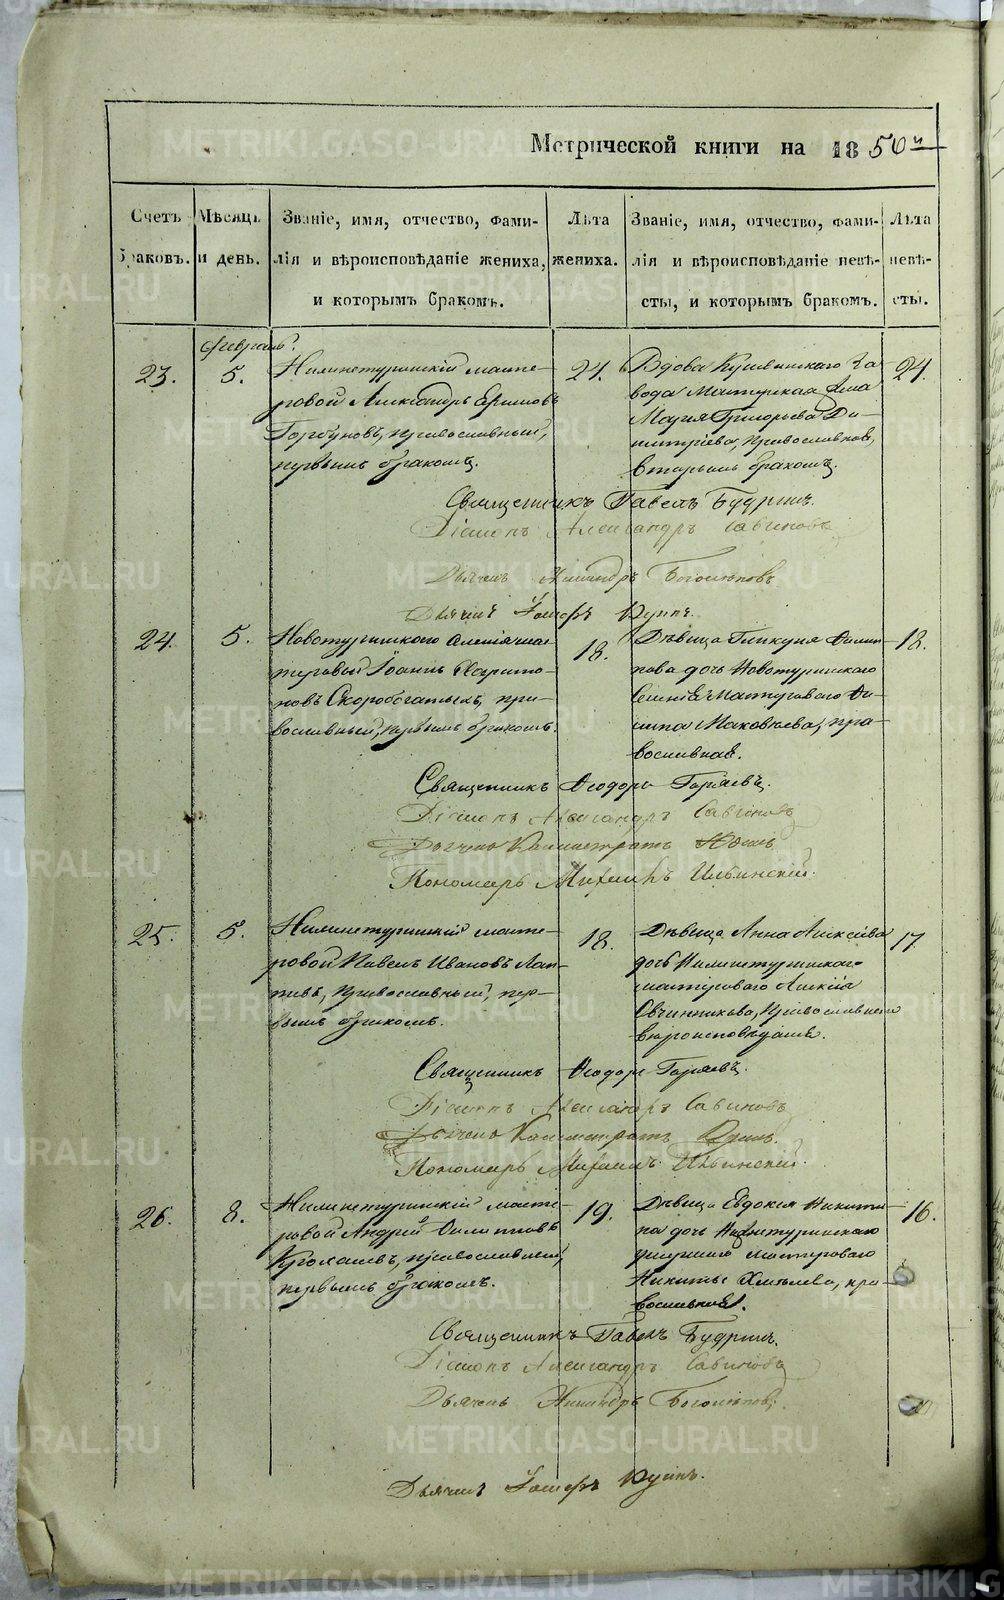 Метрической книги на 1850й
Счетъ браковъ.
Мѣсяцъ и день.
Званіе, имя, отчество, фами-
лія и вѣроисповѣданіе жениха,
и которымъ бракомъ.
Лѣта
жениха.
Званіе, имя, отчество, фами-
лія и вѣроисповѣданіе невѣ-
сты, и которымъ бракомъ.
Лѣта
невѣ-
сты.
Февраль
23.
5.
Нижнетуринскій масте-
ровой Александръ Ефимовъ
Горбуновъ, православный,
первымъ бракомъ.
24.
Вдова Кушвинскаго За-
вода Мастерская жена
Марія Григорьева Ди-
митріева, православная,
вторымъ бракомъ.
24.
Священникъ Павелъ Будринъ.
Діаконъ Александръ Савиновъ
Дьячекъ Никандръ Боголѣповъ
Дьячекъ Іосифъ
24.
5.
Новотуринскаго селенія мас-
теровой Іоаннъ Харито-
новъ Скоробогатыхъ, пра-
вославный, первымъ бракомъ.
18.
Дѣвица Гликерія Филип-
пова дочь Новотуринскаго
селенія мастероваго Фи-
липпа Маковѣева, пра-
вославная.
18.
Священникъ Ѳеодоръ Горяевъ.
Діаконъ Александръ Савиновъ
Дьячекъ Каллистратъ
Пономарь Михаилъ Ильинскій.
25.
5.
Нижнетуринскій масте-
ровой Павелъ Ивановъ Лап-
тевъ, православный, пер-
вымъ бракомъ.
18.
Дѣвица Анна Алексѣева
дочь Нижнетуринскаго
мастероваго Алексія
Овчинникова, православнаго
вѣроисповѣданія.
17
Священникъ Ѳеодоръ Горяевъ.
Діаконъ Александръ Савиновъ
Дьячекъ Каллистратъ
Пономарь Михаилъ Ильинскій.
26.
8.
Нижнетуринскій масте-
ровой Андрей Филипповъ
православный,
первымъ бракомъ.
19.
Дѣвица Евдокія Никити-
на дочь Нижнетуринскаго
мастероваго
Никиты Хмѣлева, пра-
вославная.
16.
Священникъ Павелъ Будринъ.
Діаконъ Александръ Савиновъ
Дьячекъ Никандръ Боголѣповъ
Дьячекъ Іосифъ
METRIKI.GASO-URAL.RU